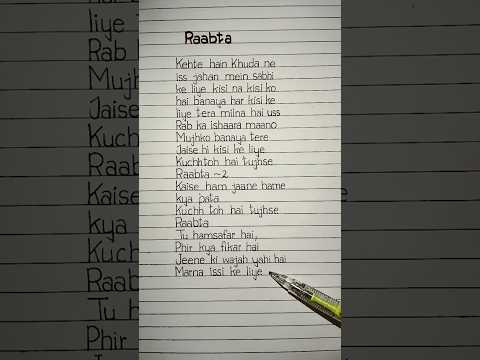 Raabta
Kehte hain Khuda ne
iss jahan mein sabhi
ke liye kisi na kisi ko
hai banaya har kisi ke
liye tera milna hai uss
Rab ka ishaara maano
Mujhko banaya tere
Jaise hi kisi ke liye
Kuchh toh hai tujhse
Raabta ~2
Kaise ham jaane hame
kya pata
Kuchh toh hai tujhse
Raabta
Tu hamsafar hai,
Phir kya fikar hai
Jeene ki wajah yahi hai
Marna issi ke liye